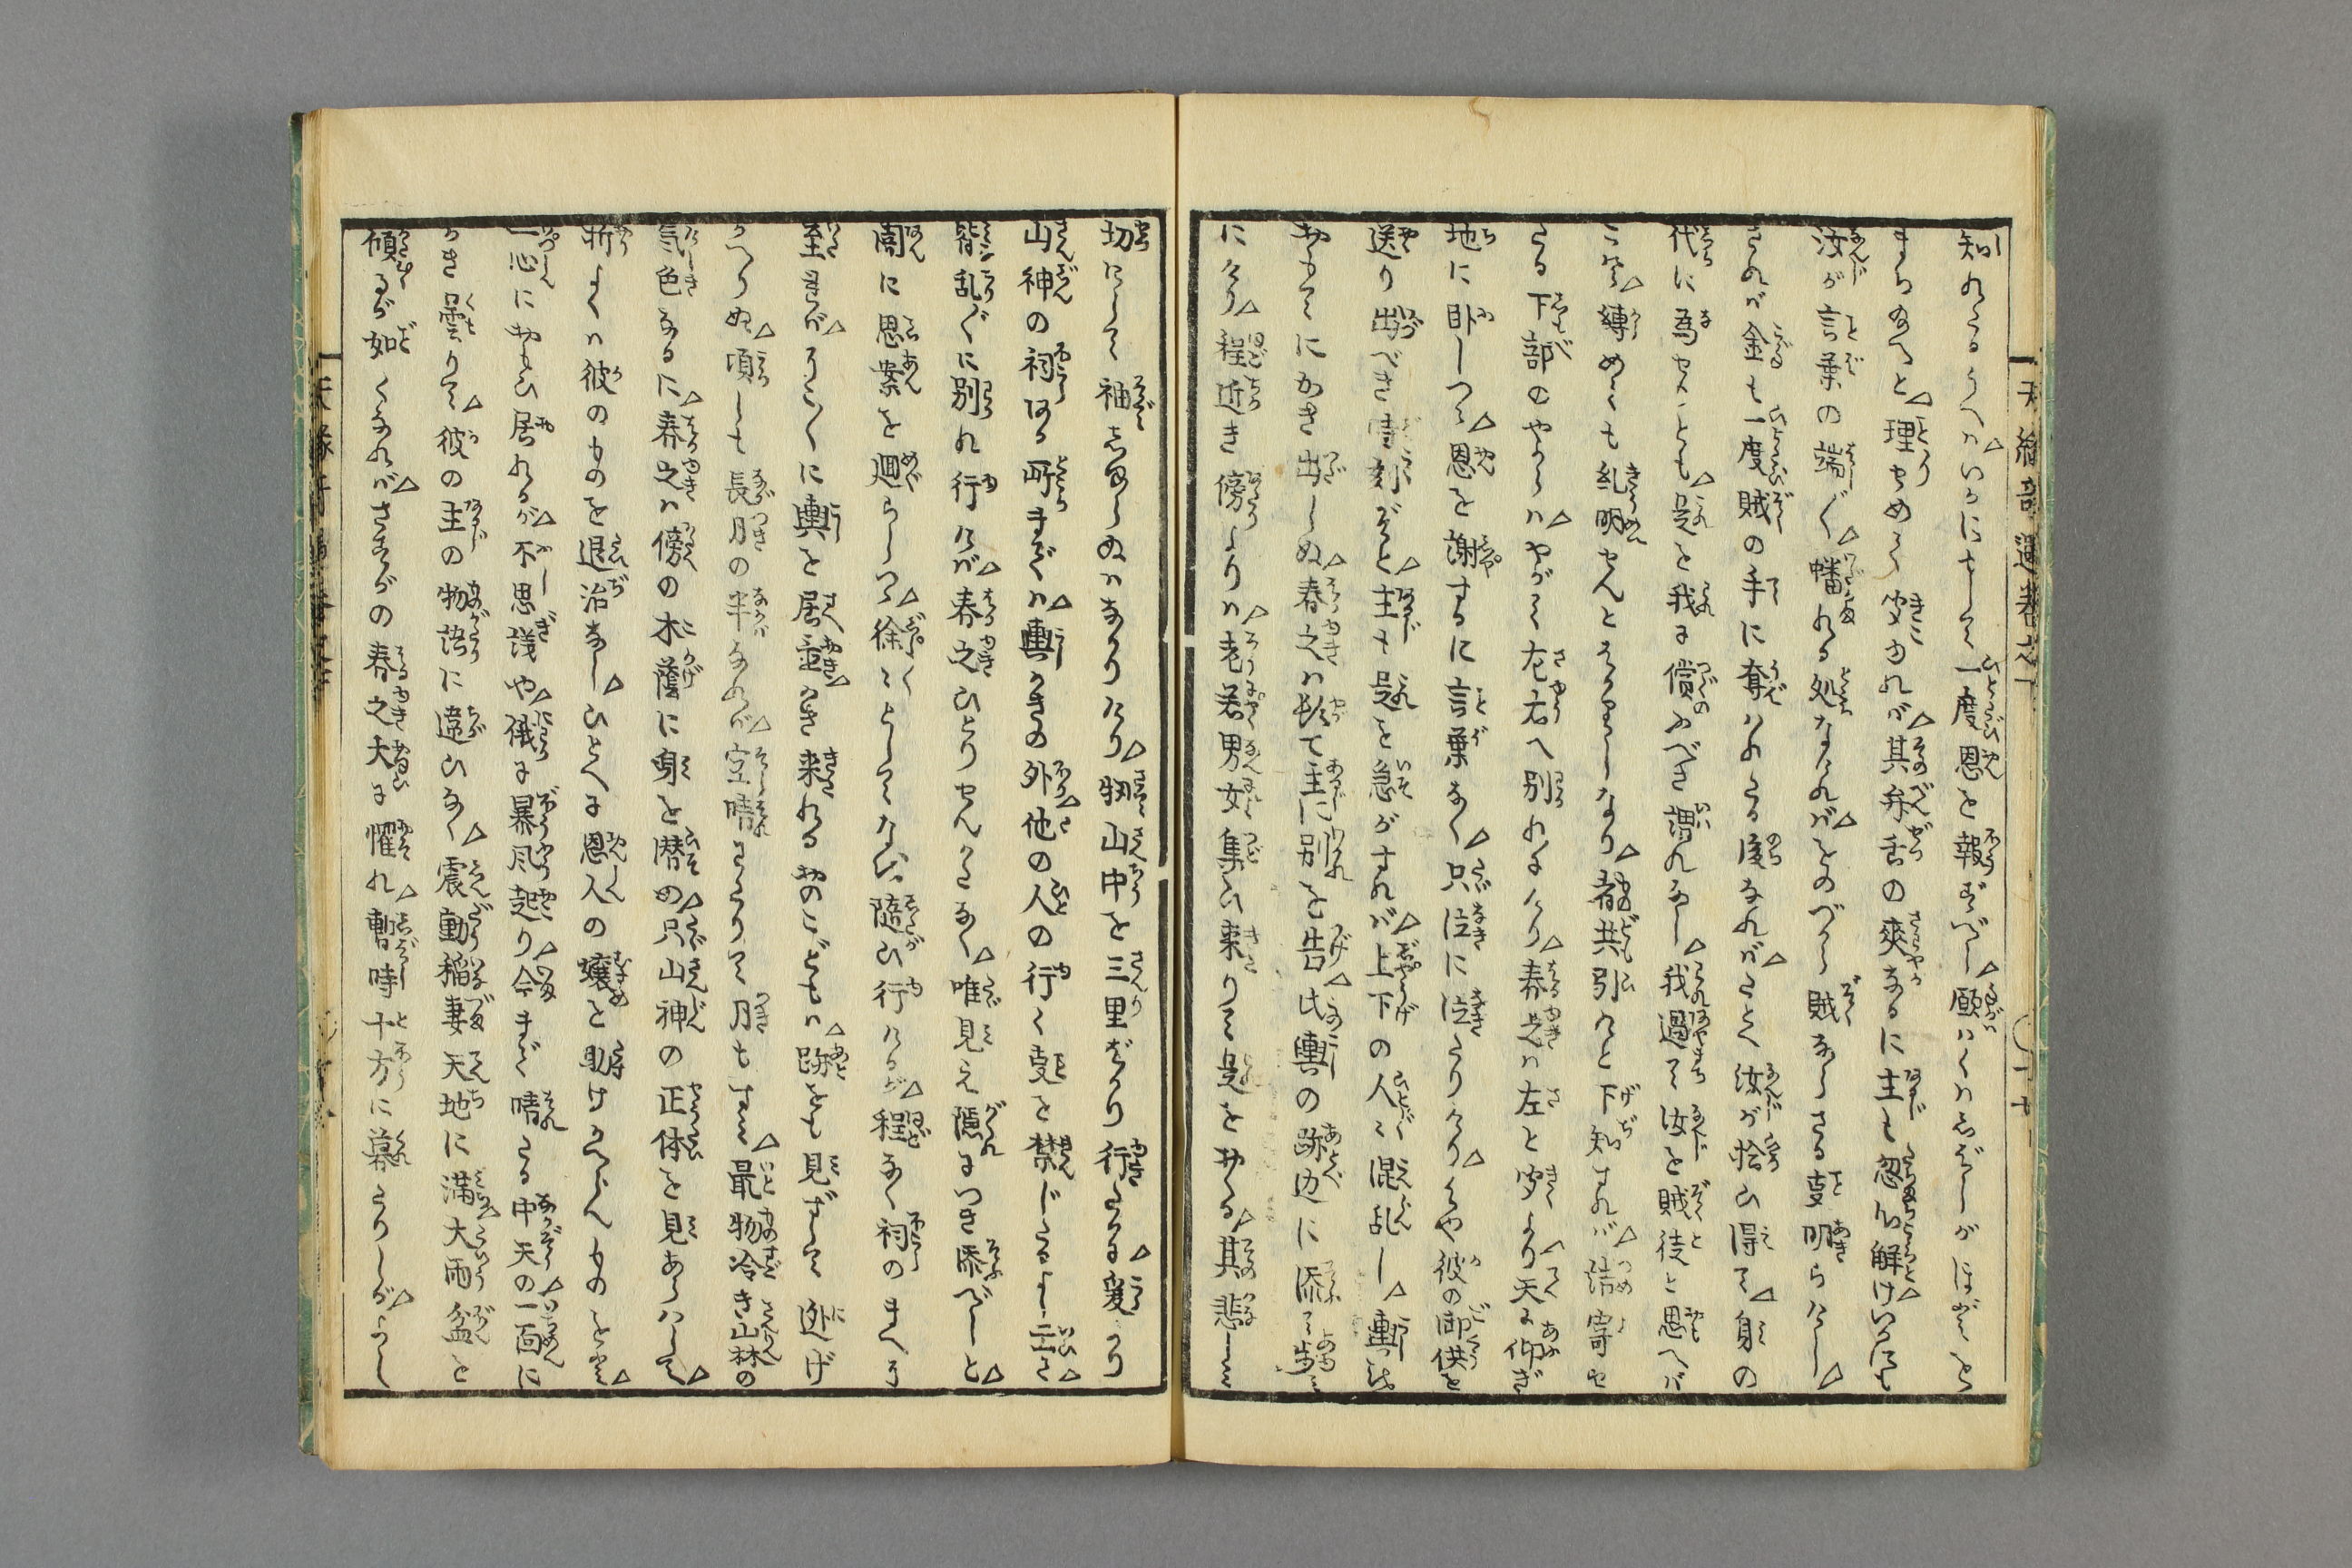 知れたるうへハ△いかにもして一度恩を報ずべし△願ハくハあざしがほどを
まち給へと△理せめて聞ゆれバ△其弁舌の爽なるに主も忽心解け△いかにも
汝が言葉の端〴〵△蟠れる処なけれバ△をのづから賊ならざる事明らけし△
されバ金も一度賊の手に奪ハれたる後なれバ△たとへ汝が拾ひ得て△身の
代に為せしとも△是を我に償ふべき謂れなし△我過て汝を賊徒と思へバ
こそ△縛めても糺明せんとはかりしなり△者共引ケと下知すれバ△詰寄せ
たる下部のやからハ△やがて左右へ別れけり△春之ハ左と聞より△天に仰ぎ
地に臥しつゝ△恩を謝するに言葉なく△只泣に泣たりけり△はや彼の御供を
送り出べき時刻ぞと△主も是を急がすれバ△上下の人〻混乱し△輿を
おもてにかき出しぬ△春之ハ軈て主に別を告△此輿の跡辺に添て歩ミ
にけり△程近き傍よりハ△老若男女集ひ来りて是をおくる△其悲しミ
切にして袖しぼらぬハなかりけり△扨山中を三里ばかり行たるに△爰より
山神の祠ある所までハ△輿かきの外△他の人の行く事を禁じたるよし云△
皆乱〴〵に別れ行けバ△春之ひとりせんかたなく△唯見え隠につき添べしと△
闇に思案を廻らしつゝ△徐〻としてたひ随ひ行けるが△程なく祠のまへに
至りけれバ△そこ〳〵に輿を居置△かき来れるおのこどもハ△跡をも見ずして逃げ
かへりぬ△頃しも長月の半なれバ△空晴わたりて月もすミ△最物冷き山林の
気色なるに△春之ハ傍の木蔭に身を潜め△只山神の正体を見あらハして△
折よくハ彼のものを退治なし△ひとへに恩人の嬢を助けかへさんものをと△
一心におもひ居れるが△不思議や△俄に暴風起り△今まで晴たる中天の△一面に
かき曇りて△彼の主の物語に違ひなく△震動稲妻天地に満△大雨盆を
傾るが如くなれバ△さすがの春之大に懼れ△暫時十方に暮たりしが△よし